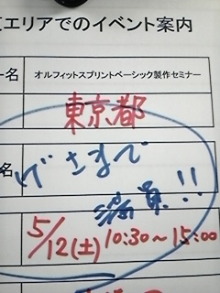 エリアでのイベント案内
ー名 オルフィットスプリントベーシック製作セミナー
東京都
名 げさまで
満員!!
5/12(土) 10:30~15:00